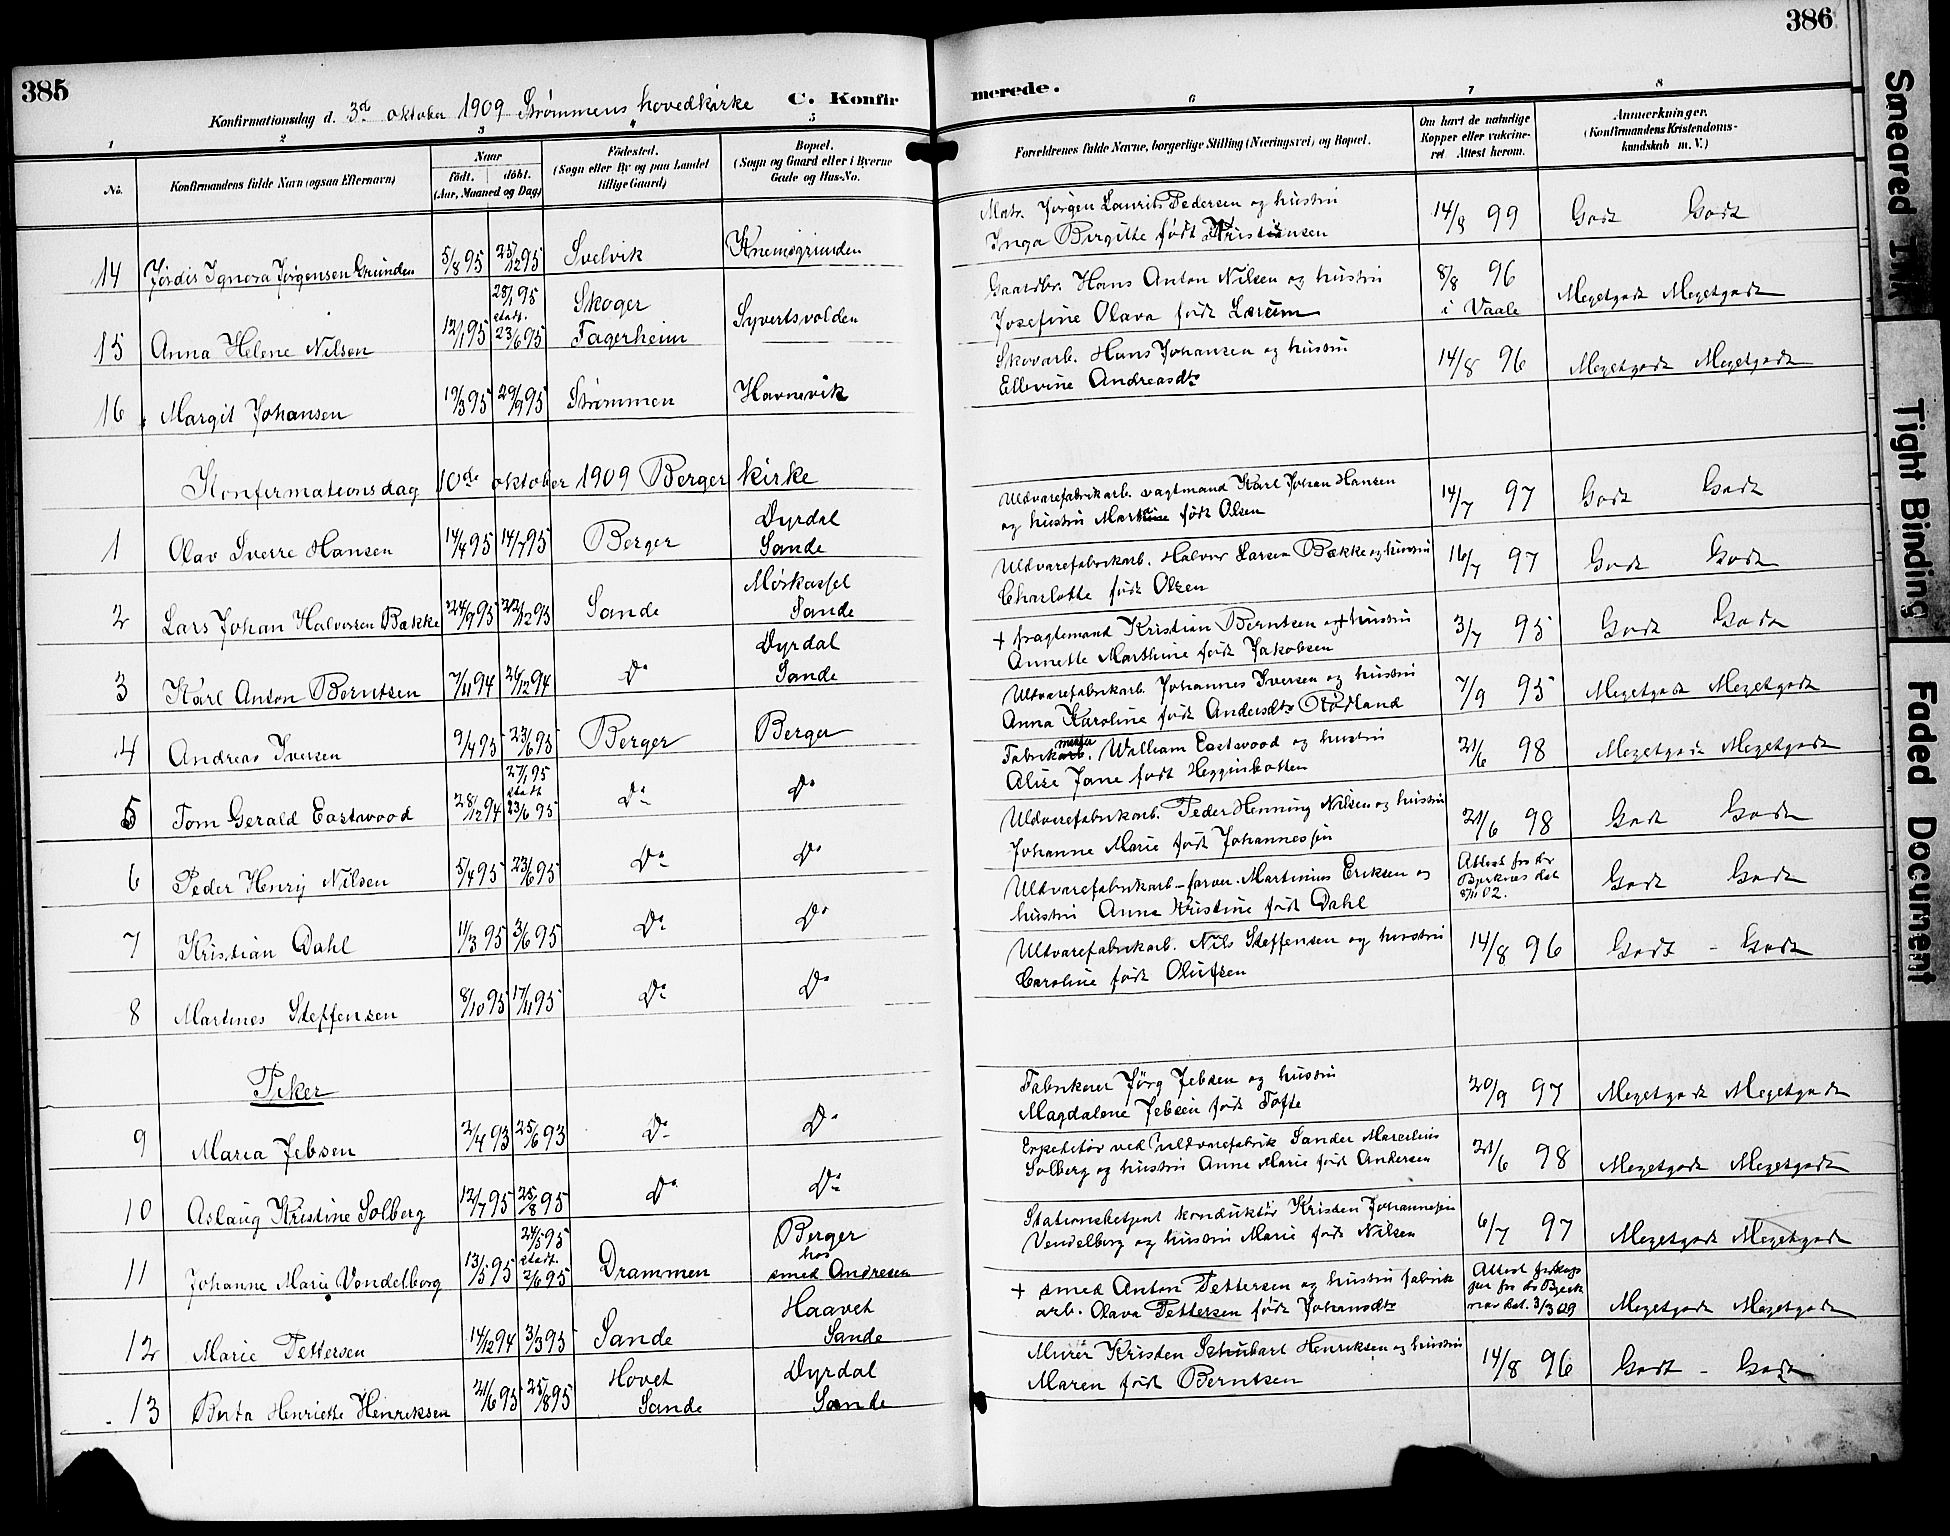 385
386
Konfirmationsdag d. 3de oktober 1909 Strømmens hovedkirke C. Konfirmerede.
1 2 3 4 5 6 7 8
No.
Konfirmandens fulde Navn (ogsaa Efternavn)
Naar
født. døbt.
(Aar, Maaned og Dag)
Fødested.
(Sogn eller By og paa Landet
tillige Gaard)
Bopæl.
(Sogn og Gaard eller i Byerne
Gade og Hus-No.
Forældrenes fulde Navne, borgerlige Stilling (Næringsvei) og Bopæl.
Om havt de naturlige
Kopper eller vakcine-
ret Attest herom.
Anmerkninger.
(Konfirmandens Kristendoms-
kundskab m. V.)
14 Jørdis Ignora Jørgensen Grunden 5/8 95 25/12 95 Svelvik Knemsgrunden
Matr. Jørgen Laurits Pedersen og hustru
Inga Birgitte født Kristiansen 14/8 99 Godt Godt
15 Anna Helene Nilsen 12/1 95 28/1 95 stadf. 23/6 95 Skoger Fagerheim Syvertsvolden
Gaardbr. Hans Anton Nilsen og hustru
Josefine Olava født Lørum 8/8 96 i Vaale Megetgodt Megetgodt
16 Margit Johansen 19/3 95 29/9 95 Strømmen Havnevik
Skovarb. Hans Johansen og hustru
Ellevine Andreasdtr 14/8 96 Megetgodt Megetgodt
Konfirmationsdag 10de oktober 1909 Berger kirke
1 Olav Sverre Hansen 14/4 95 14/7 95 Berger Dyrdal Sande
Uldvarefabrikarb. vagtmand Karl Johan Hansen
og hustru Marthine født Olsen 14/7 97 Godt Godt
2 Lars Johan Halvorsen Bække 24/9 95 22/12 95 Sande Mørkassel Sande
Uldvarefabrikarb. Halvor Larsen Bække og hustru
Charlotte født Olsen 16/7 97 Godt Godt
3 Karl Anton Berntsen 7/11 94 26/12 94 Do Dyrdal Sande
+ fragtemand Kristian Berntsen og + hustru
Annette Marthine født Jakobsen 3/7 95 Godt Godt
4 Andreas Iversen 9/4 95 23/6 95 Berger Berger
Uldvarefabrikarb. Johannes Iversen og hustru
Anna Karoline født Andersdtr Rødland 7/9 95 Megetgodt Megetgodt
5 Tom Gerald Eastwood 28/12 94 27/1 95 stadf. 23/6 95 Do Do
Fabrikarb. mester William Eastwood og hustru
Alise Jane født Hegginbotten 21/6 98 Megetgodt Megetgodt
6 Peder Henrij Nilsen 5/4 95 23/6 95 Do Do
Uldvarefabrikarb. Peder Henning Nilsen og hustru
Johanne Marie født Johannessen 21/6 98 Godt Godt
7 Kristian Dahl 11/3 95 3/6 95 Do Do
Uldvarefabrikarb - farver. Martinius Eriksen og
hustru Anna Kristine født Dahl Attest fra dr Bjerknæs dat 8/11 02. Godt Godt
8 Martines Steffensen 8/10 95 17/11 95 Do Do
Uldvarefabrikarb. Nils Steffensen og hustru
Caroline født Olufsen 14/8 96 Godt - Godt
Piker
9 Maria Jebsen 2/4 93 25/6 93 Do Do
Fabrikeier Jørg Jebsen og hustru
Magdalene Jebsen født Tofte 20/9 97 Megetgodt Megetgodt
10 Aslaug Kristine Solberg 12/7 95 25/8 95 Do Do
Expeditør ved uldvarefabrik Sander Marcelius
Solberg og hustru Anne Marie født Andersen 21/6 98 Megetgodt Megetgodt
11 Johanne Marie Vendelborg 13/5 95 24/5 95 stadf. 2/6 95 Drammen Berger hos smed Andresen
Stationsbetjent konduktør Kristen Johannesen
Vendelborg og hustru Marie født Nilsen 6/7 97 Megetgodt Megetgodt
12 Marie Pettersen 14/12 94 3/3 95 Sande Haavet Sande
+ smed Anton Pettersen og hustru fabrik
arb. Olava Pettersen født Johansdtr Attest fra dr Bjerknæs dat. 3/3 09 Megetgodt Megetgodt
13 Berta Henriette Henriksen 21/6 95 25/8 95 Hovet Sande Dyrdal Sande
Murer Kristen Schubart Henriksen og hustru
Maren født Berntsen 14/8 96 Godt - Godt
Smeared Ink
Tight Binding
Faded Document